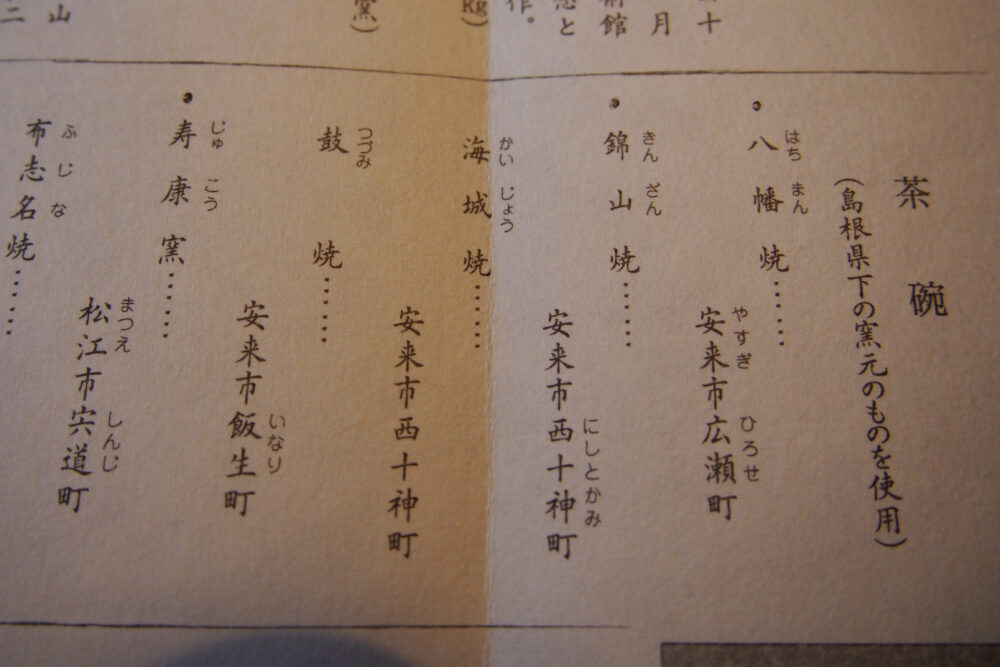 茶碗
(島根県下の窯元のものを使用)
はちまん
八幡焼……
やすぎ ひろせ
安来市広瀬町
きんざん
錦山焼……
にしとかみ
安来市西十神町
かいじょう
海城焼……
安来市西十神町
つづみ
鼓焼……
いなり
安来市飯生町
じゅこう
寿康窯……
まつえ しんじ
松江市宍道町
ふじな
布志名焼……